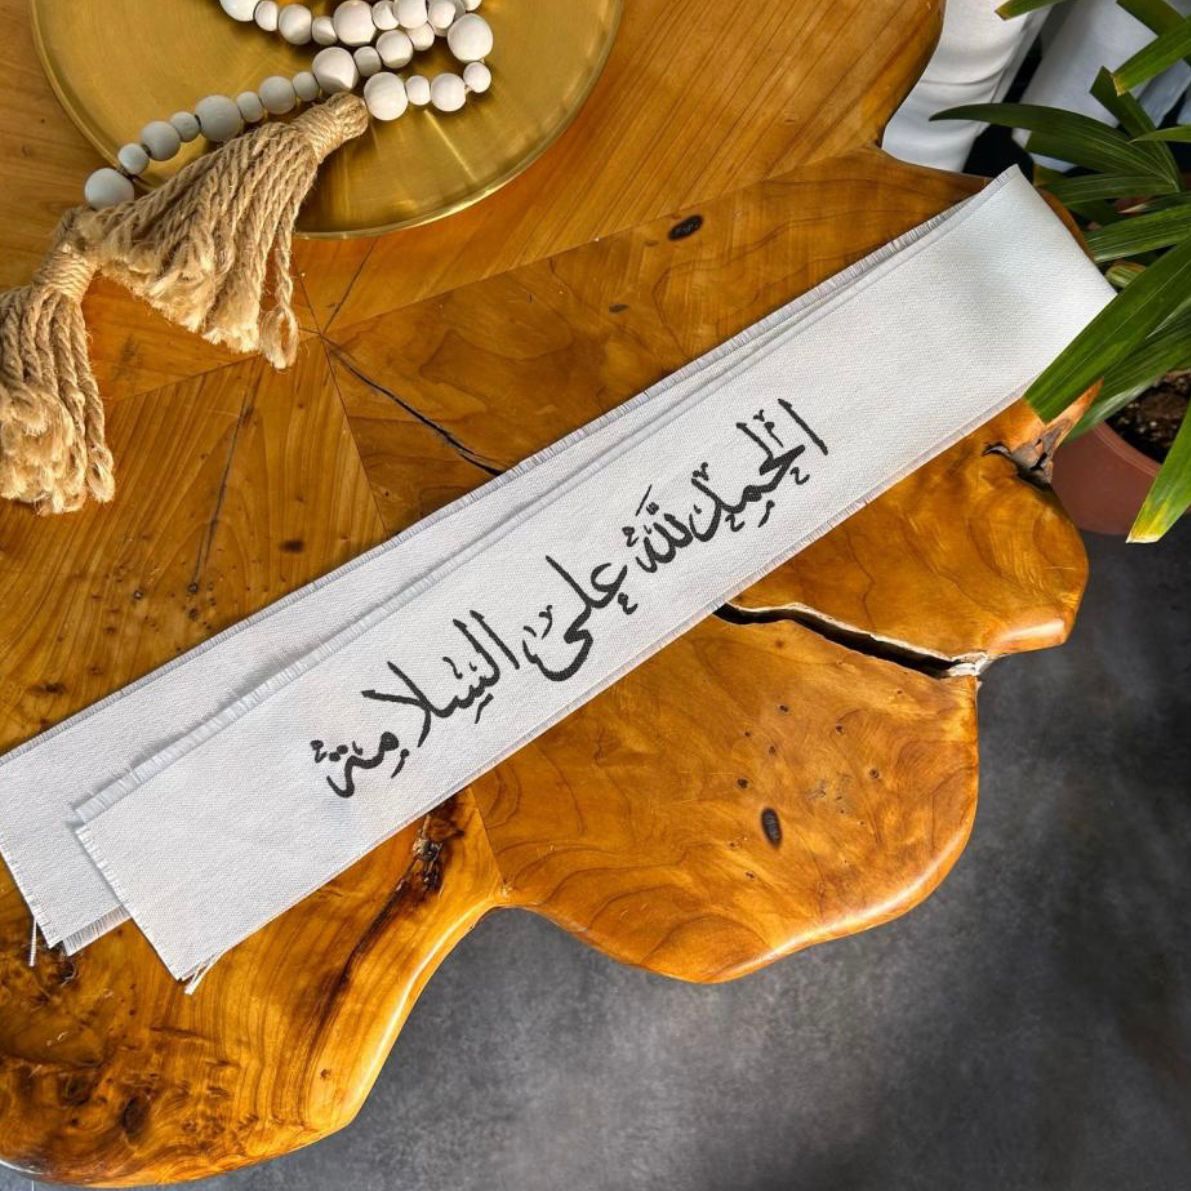 الحمد للّٰه على السلامة